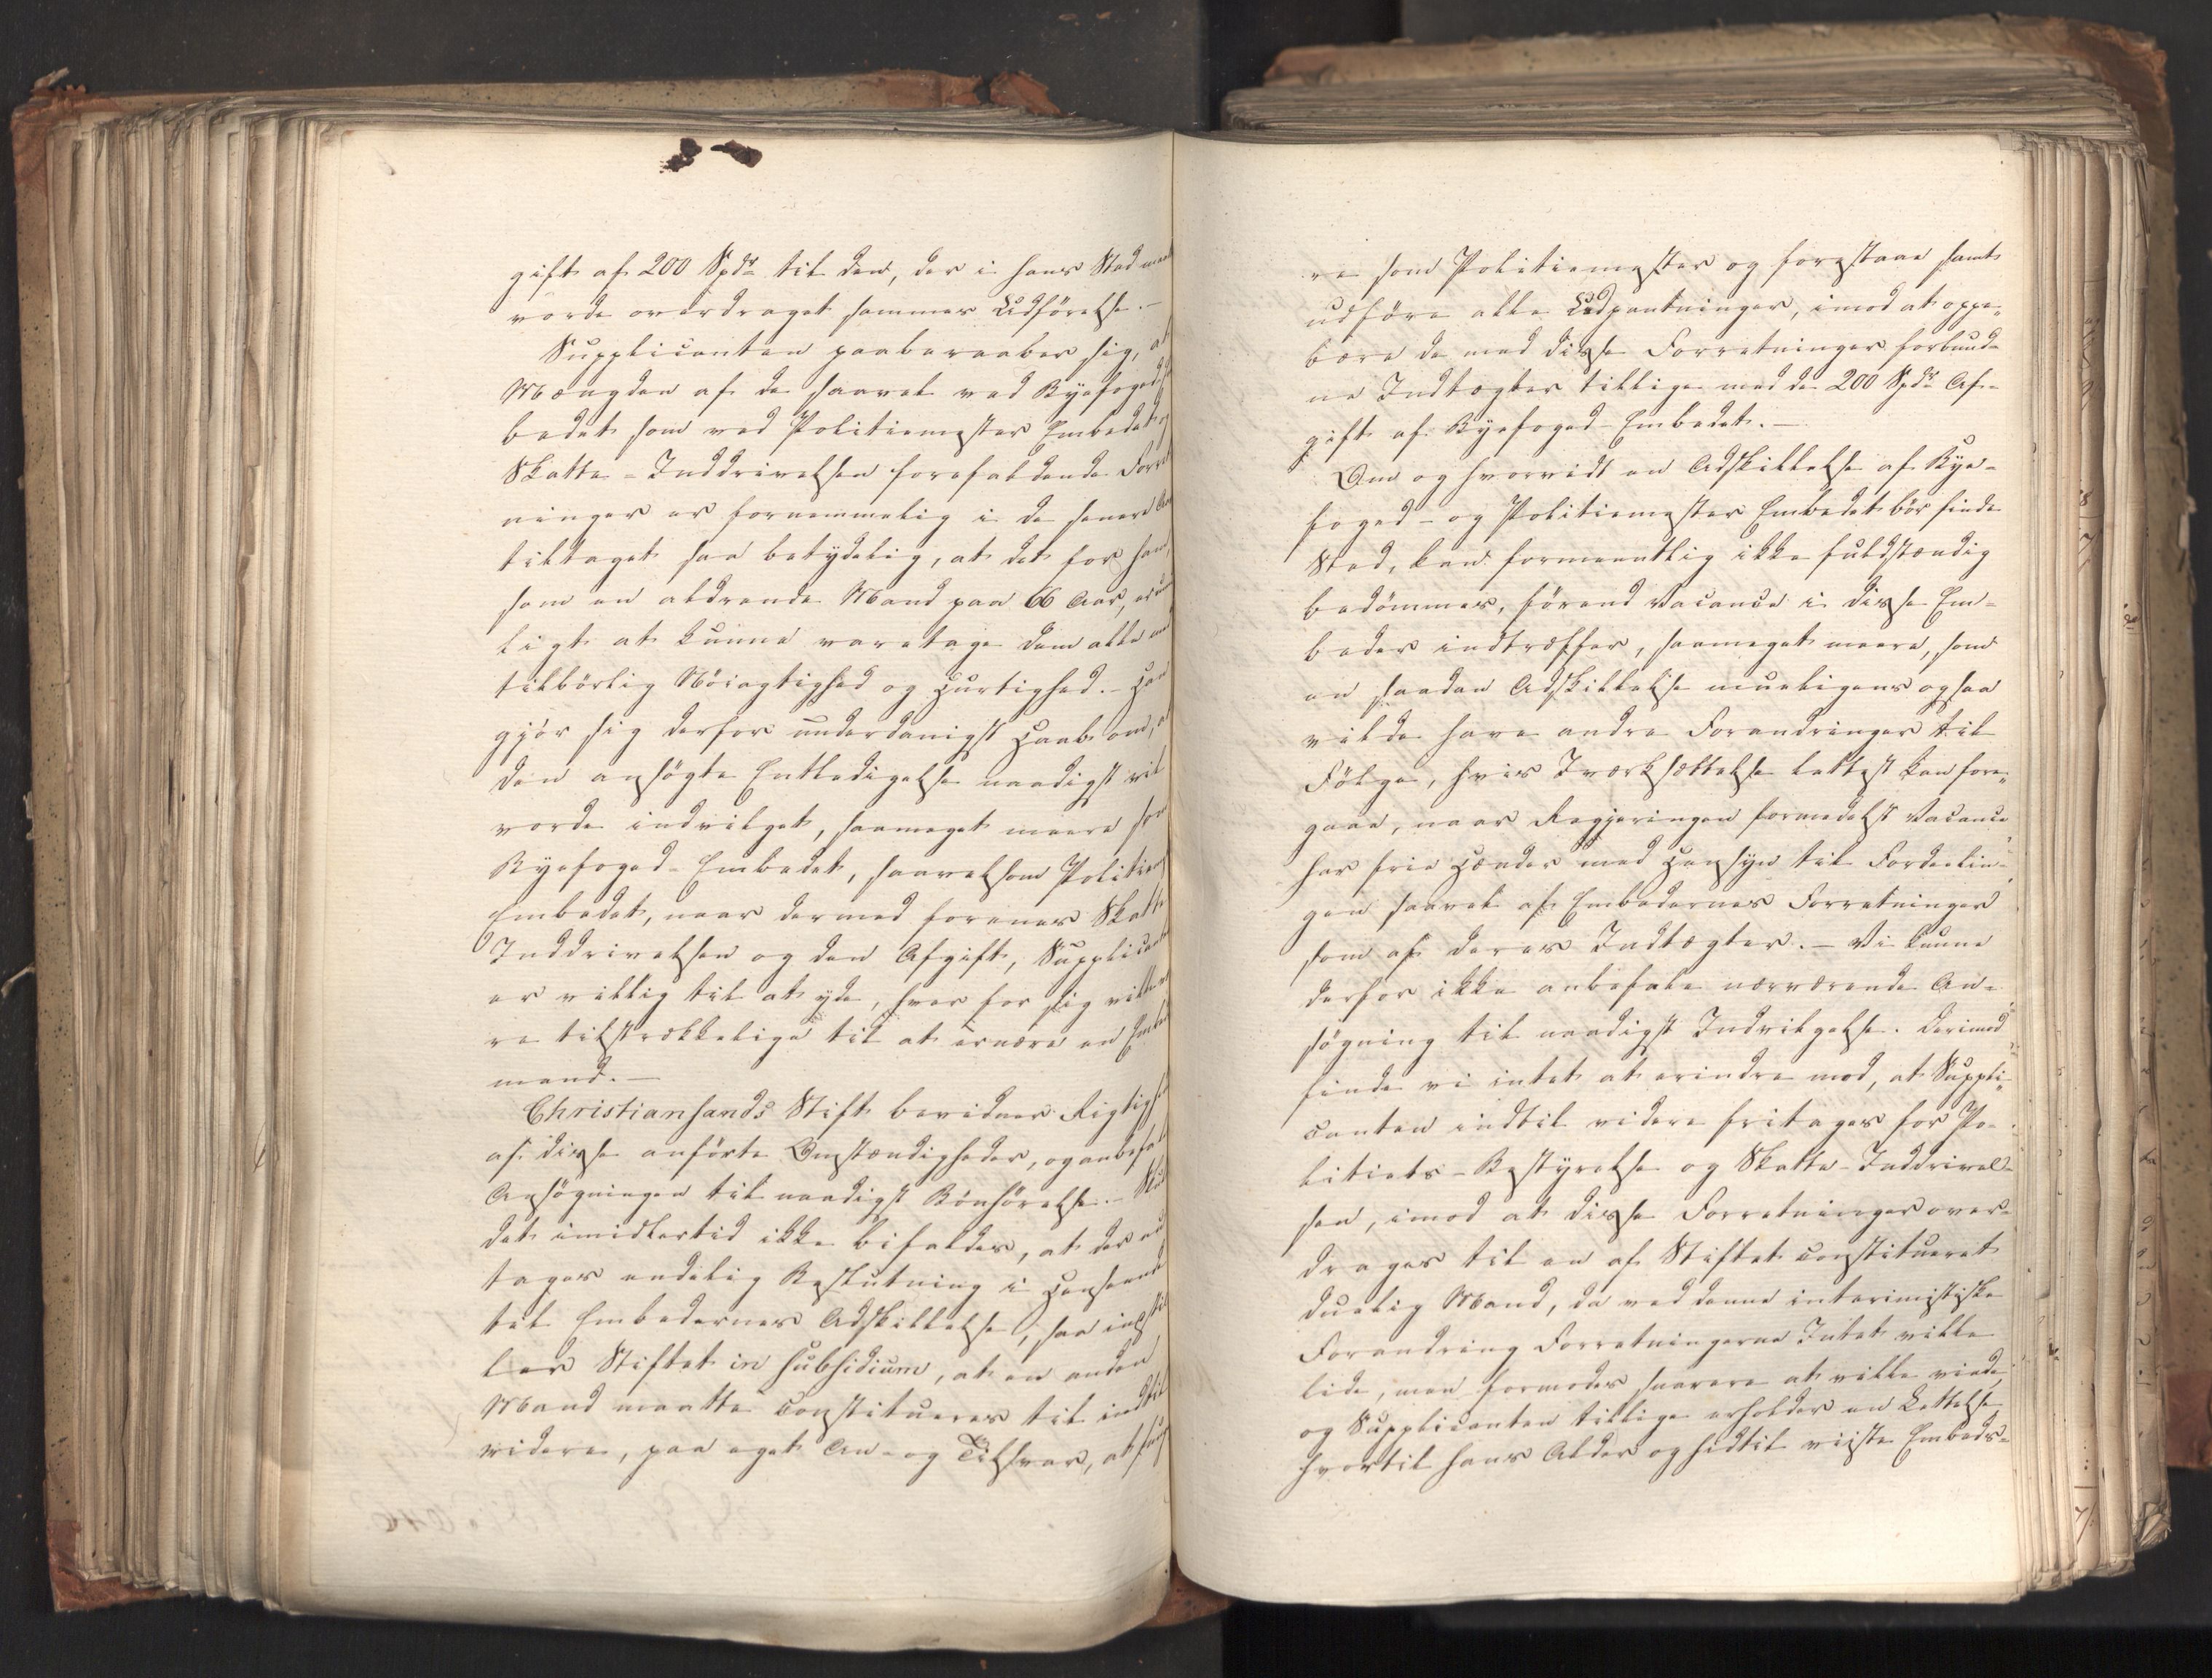 gift af 200 Spdr til den, der i hans Sted maat
vorde overdraget sammes Udförelse. –
Supplicanten paaberaaber sig, at
Mængden af de saavel ved Byefoged
bedet som ved Politiemester Embedet og
Skatte-Inddrivelsen forefaldende Forret
ninger er fornemmelig i de senere Aar
tiltaget saa betydelig, at det for ham,
som en aldrende Mand paa 66 Aar, er umu
ligt at kunne varetage dem alle med
tilbörlig Nöiagtighed og Hurtighed. – Han
gjör sig derfor underdanigst Haab om, at
den ansögte Entledigelse naadigst vil
vorde indvilget, saameget meere som
Byefoged-Embedet, saavelsom Politiem
Embedet, naar dermed forenes Skatte
Inddrivelsen og den Afgift, Supplicanten
er villig til at yde, hver for sig ville væ
re tilstrækkelige til at ernære en Embeds
mand. –
Christiansands Stift bevidner Rigtighe
af disse anförte Omstændigheder, og anbefal
Ansögningen til naadigst Bönhörelse. – Skul
det imidlertid ikke bifaldes, at der nu
tages endelig Beslutning i Henseende
til Embedernes Adskillelse, saa indstil
ler Stiftet in subsidium, at en anden
Mand maatte constitueres til indtil
videre, paa eget An- og Tilsvar, at fung
re som Politiemester og forestaae samt
udföre alle Udpantninger, imod at oppe„
bære de med disse Forretninger forbund-
ne Indtægter tillige med de 200 Spdr Af-
gift af Byefoged-Embedet. –
Om og hvorvidt en Adskillelse af Bye-
foged- og Politiemester Embedet bör finde
Sted, kan formeentlig ikke fuldstændig
bedömmes, förend Vacance i disse Em-
beder indtræffer, saameget meere, som
en saadan Adskillelse mueligens ogsaa
vilde have andre Forandringer til
Fölge, hvis Iværksættelse lettest kan fore„
gaae, naar Regjeringen formedelst Vacance
har frie Hænder med Hensyn til Fordeelin-
gen saavel af Embedernes Forretninger
som af deres Indtægter. – Vi kunne
derfor ikke anbefale nærværende An-
sögning til naadigst Indvilgelse. Derimod
finde vi intet at erindre mod, at Suppli-
canten indtil videre fritages for Po-
litiets-Bestyrelse og Skatte-Inddrivel-
sen, imod at disse Forretninger over-
drages til en af Stiftet constitueret
duelig Mand, da ved denne interimistiske
Forandring Forretningerne Intet ville
lide, men formodes snarere at ville vinde,
og Supplicanten tillige erholder en Lettelse,
hvortil hans Alder og hidtil viiste Embeds-